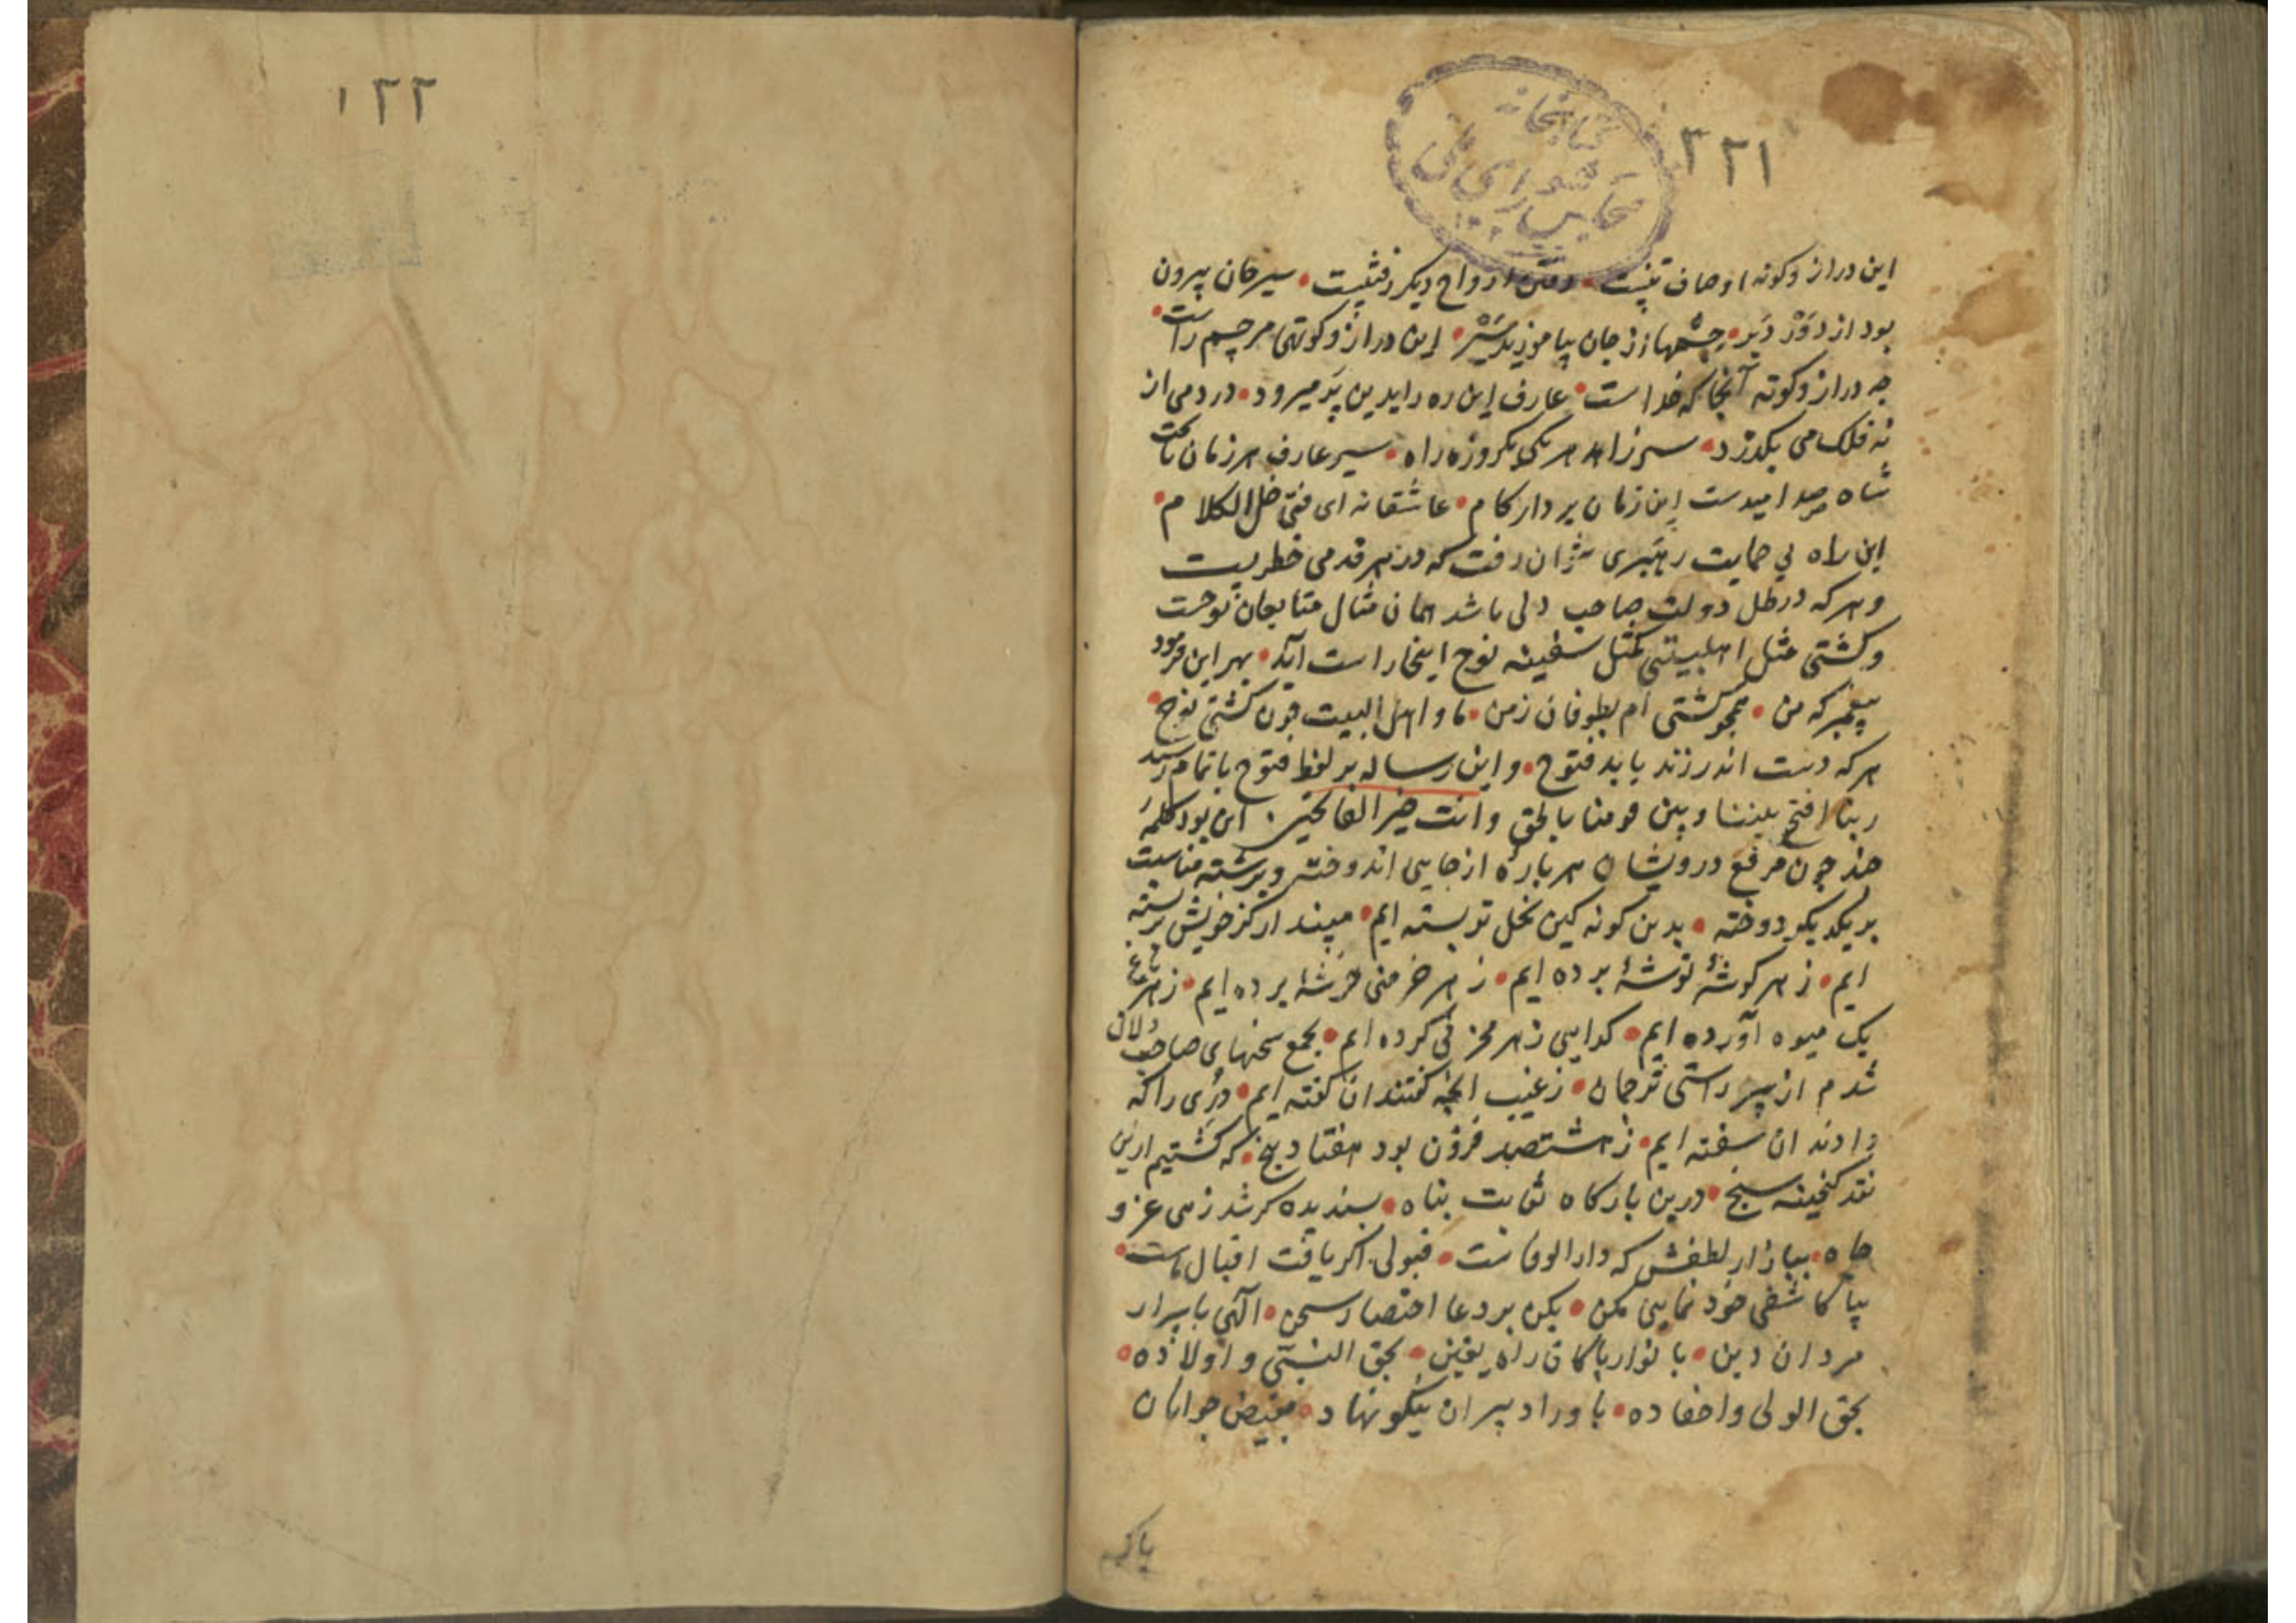 ۳۲۱
کتابخانه
مجلس شورای ملی
این دراز و کوته اوصاف تنیست رفتن ارواح دیکر رفتنیست سیر جان بیرون
بود از دور دیر جسمها از جان بیاموزید سیر این دراز و کوتهی مر جسم راست
چه دراز و کوته آنجا که خداست عارف این ره را بدین پر میرود در دمی از
نه فلک می بکذرد سیر زاهد هر یکی یکروزه راه سیر عارف هر زمان تا تخت
شاه صد امیدست این زمان بردار کام عاشقانه ای فتی خل الکلام
این راه بی حمایت رهبری نتوان رفت که در هر قدمی خطریست
و هر که در ظل دولت صاحب دلی باشد همان مثال متابعان نوحست
و کشتی مثل اهلبیتی کمثل سفینه نوح اینجا راست آید بهر این فرمود
پیغمبر که من همچو کشتی ام بطوفان زمن ما و اهل البیت چون کشتی نوح
هر که دست اندر زند یابد فتوح و این رساله بر لفظ فتوح باتمام رسید
ربنا افتح بیننا و بین قومنا بالحق و انت خیر الفاتحین این بود کلمهٔ
چند چون مرقع درویشان هر پارهٔ از جایی اندوخته و برشته مناسبت
بر یکدیکر دوخته بدین کونه کین نخل تو بسته ایم مپندار کز خویش بر بسته
ایم ز هر کوشهٔ توشهٔ برده ایم ز هر خرمنی خوشهٔ برده ایم ز هر باغ
یک میوه آورده ایم کدایی ز هر مخزنی کرده ایم بجمع سخنهای صاحب دلان
شدم از سر راستی ترجمان ز غیب انچه کفتند ان کفته ایم دری را که
دادند ان سفته ایم ز هشتصد فزون بود هفتاد پنج که کشتیم ازین
نقد کنجینه سنج درین بارکاه ثوابت پناه پسندیده کر شد زهی عز و
جاه ببازار لطفش که دار الوفاست قبولی اکر یافت اقبال ماست
بیا کاشفی خود نمایی مکن بکن بر دعا اختصار سخن الهی باسرار
مردان دین بانوار پاکان راه یقین بحق النبی و اولاده
بحق الولی و احفاده باوراد پیران نیکو نهاد بفیض جوانان
پاک
۱۲۲